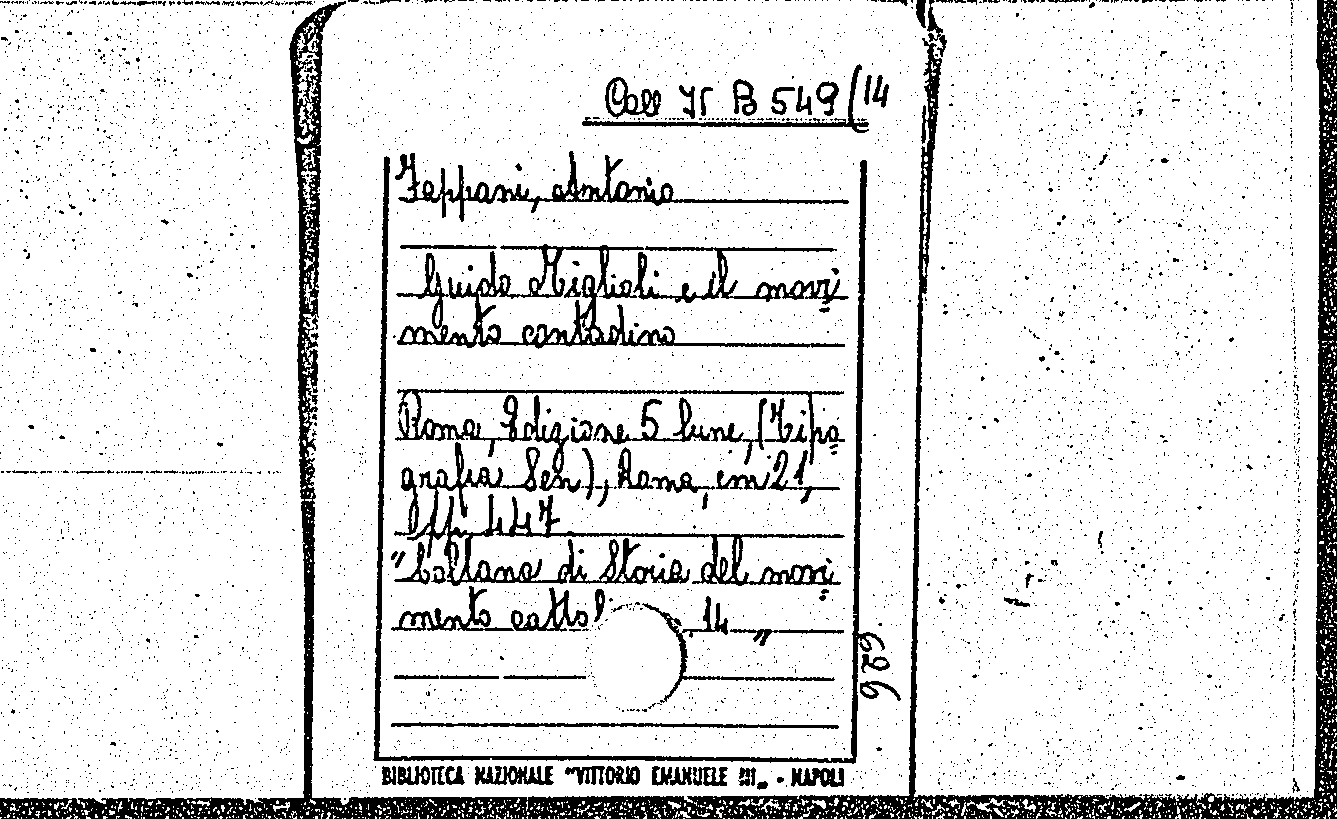 Coll It B 549/14
Fappani, Antonio
Guido Miglioli e il movi
mento contadino
Roma, Edizione 5 lune, (Tipo
grafia Seh), Roma, cm 21,
pp. 447
"Collana di Storia del movi
mento cattol 14 "
989
BIBLIOTECA NAZIONALE "VITTORIO EMANUELE III„ - NAPOLI